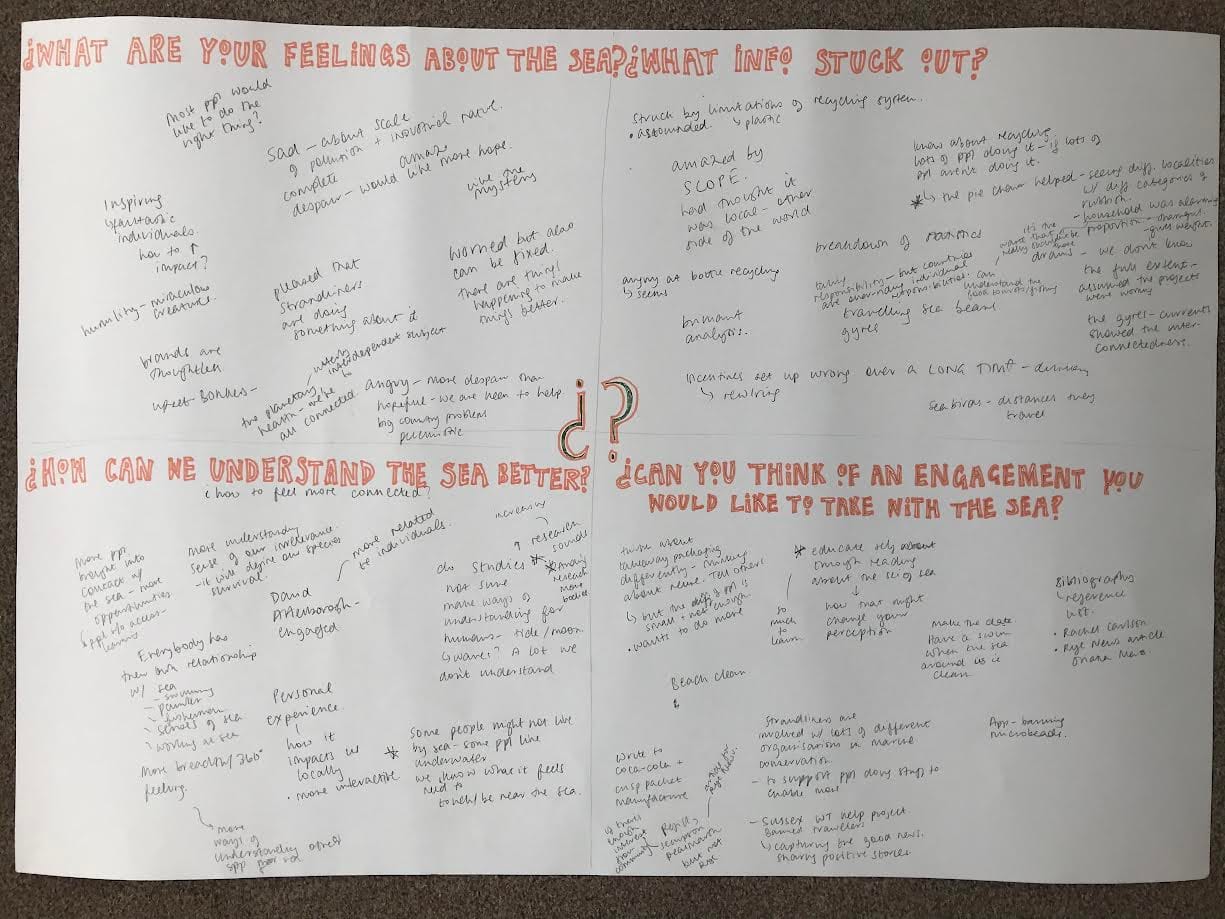 ¿WHAT ARE YOUR FEELINGS ABOUT THE SEA?
most ppl would
like to do the
right thing?
Sad - about scale
of pollution + industrial nature.
complete amaze
despair - would like more hope.
like the
mystery
Inspiring
fantastic
individuals.
how to ↑
impact?
humility - miraculous
creature.
pleased that
Strandliners
are doing
something about it
Worried but also
can be fixed.
There are things
happening to make
things better.
brands are
thoughtless
upset - BONKERS -
the planetary
health - we're
all connected
interdependent subject
angry - more despair than
hopeful - we are keen to help
big country problems
pessimistic
¿WHAT INFO STUCK OUT?
Struck by limitations of recycling system.
• astounded. ↳ plastic
amazed by
SCOPE.
had thought it
was local - other
side of the world
know about recycling
lots of ppl doing it - if lots of
ppl aren't doing it.
* ↳ the pie chart helped - seeing diff. localities
w/ diff categories of
rubbish.
- household was alarming
proportion - shameful
- gives weight.
breakdown of statistics
angry at bottle recycling
↳ seems
taking
responsibility - but countries
are overriding individual
responsibilities. can
understand the
travelling sea beans
gyres
drains - we don't know
the full extent -
assumed the projects
were working
brilliant
analysis.
the gyres - currents
showed the inter-
connectedness.
Incentives set up wrong over a LONG TIME -
↳ rewiring
Seabirds - distances they
travel
¿?
¿HOW CAN WE UNDERSTAND THE SEA BETTER?
¿ how to feel more connected?
more ppl
brought into
contact w/
the sea - more
opportunities
↳ ppl w/o access -
learning
more understanding
sense of our irrelevance.
- it will define our species
survival.
more related
to individuals.
David
Attenborough -
engaged
increasing
↑ research
sounds
do studies *
not sure
many ways of
understanding for
humans - tide/moon
↳ waves? A lot we
don't understand
research
more
bodies
Everybody has
their own relationship
w/ sea
- swimming
- painter
- fisherman
- senses of sea
- working at sea
Personal
experience.
how it
impacts us
locally
• more interactive
* Some people might not live
by sea - some ppl like
underwater
we know what it feels
need to
touch/be near the sea.
More breadth/360°
feeling.
more
ways of
understanding other
spp
¿CAN YOU THINK OF AN ENGAGEMENT YOU
WOULD LIKE TO TAKE WITH THE SEA?
think about
takeaway packaging
differently - thinking
about reuse. Tell others
↳ but the of ppl is
small + not enough
• wants to do more
* educate self about
through reading
about the sci of sea
so
much
to
learn
how that might
change your
perception
make the date
have a swim
when the sea
around us is
clean
Bibliography
↳ reference
list.
• Rachel Carlson
• Rye News article
Beach clean
Write to
coca-cola +
crisp packet
manufacture
Strandliners are
involved w/ lots of different
organisations in marine
conservation
- to support ppl doing stuff to
enable more
App - banning
microbeads.
Rye Harbour.
if there's
enough
interest
from
community
Refill,
but not
Rye
- Sussex WT kelp project.
Banned trawlers
↳ capturing the good news.
sharing positive stories.